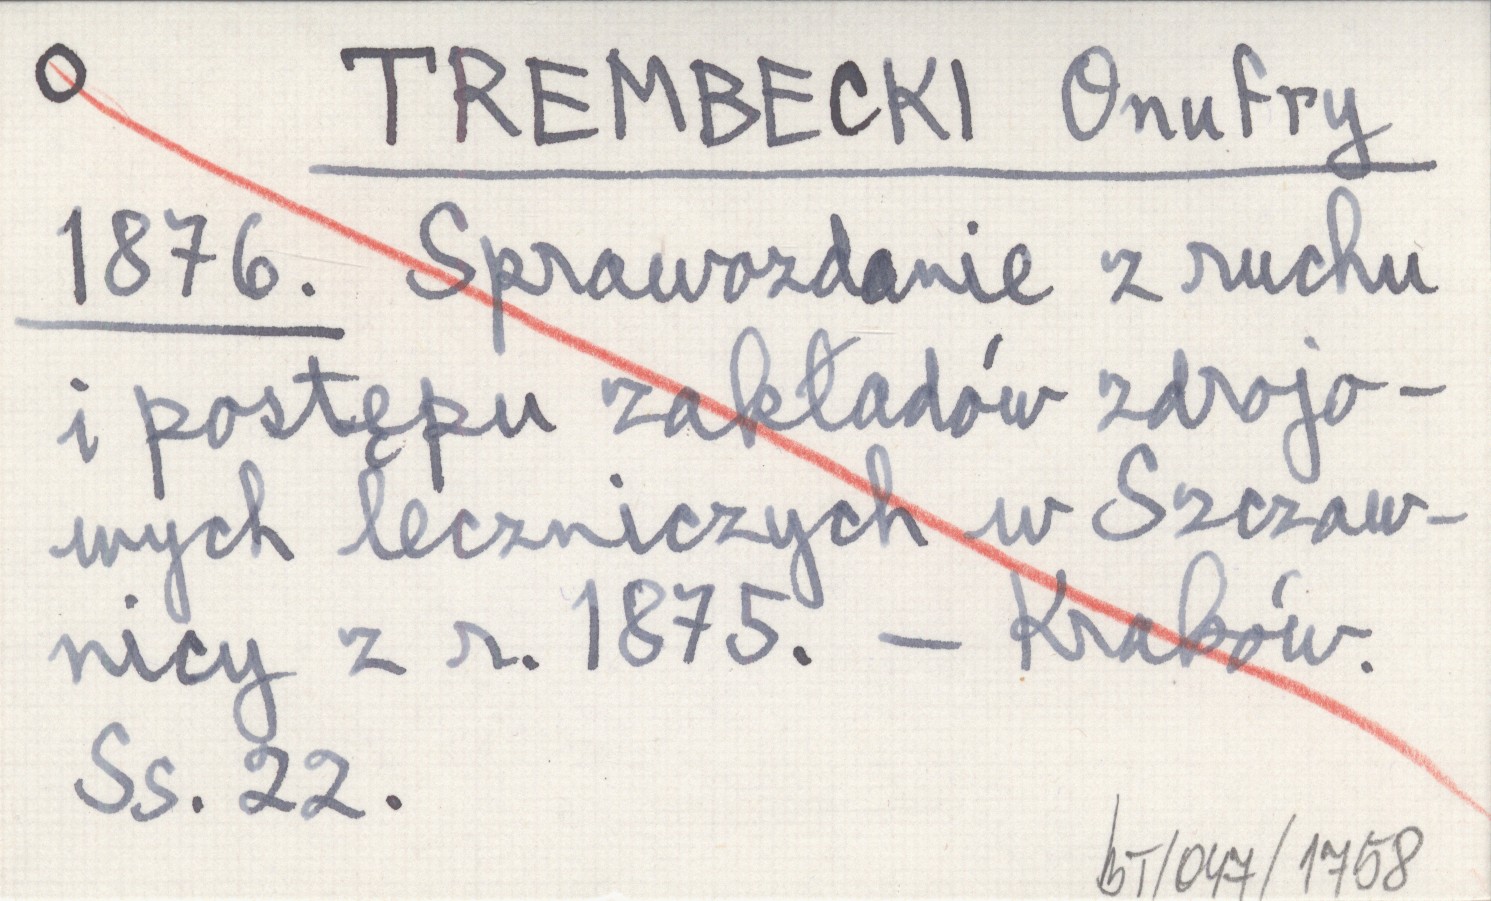 O TREMBECKI Onufry
1876. Sprawozdanie z ruchu
i postępu zakładów zdrojo-
wych leczniczych w Szczaw-
nicy z r. 1875. — Kraków.
Ss. 22.
bT/047/1758